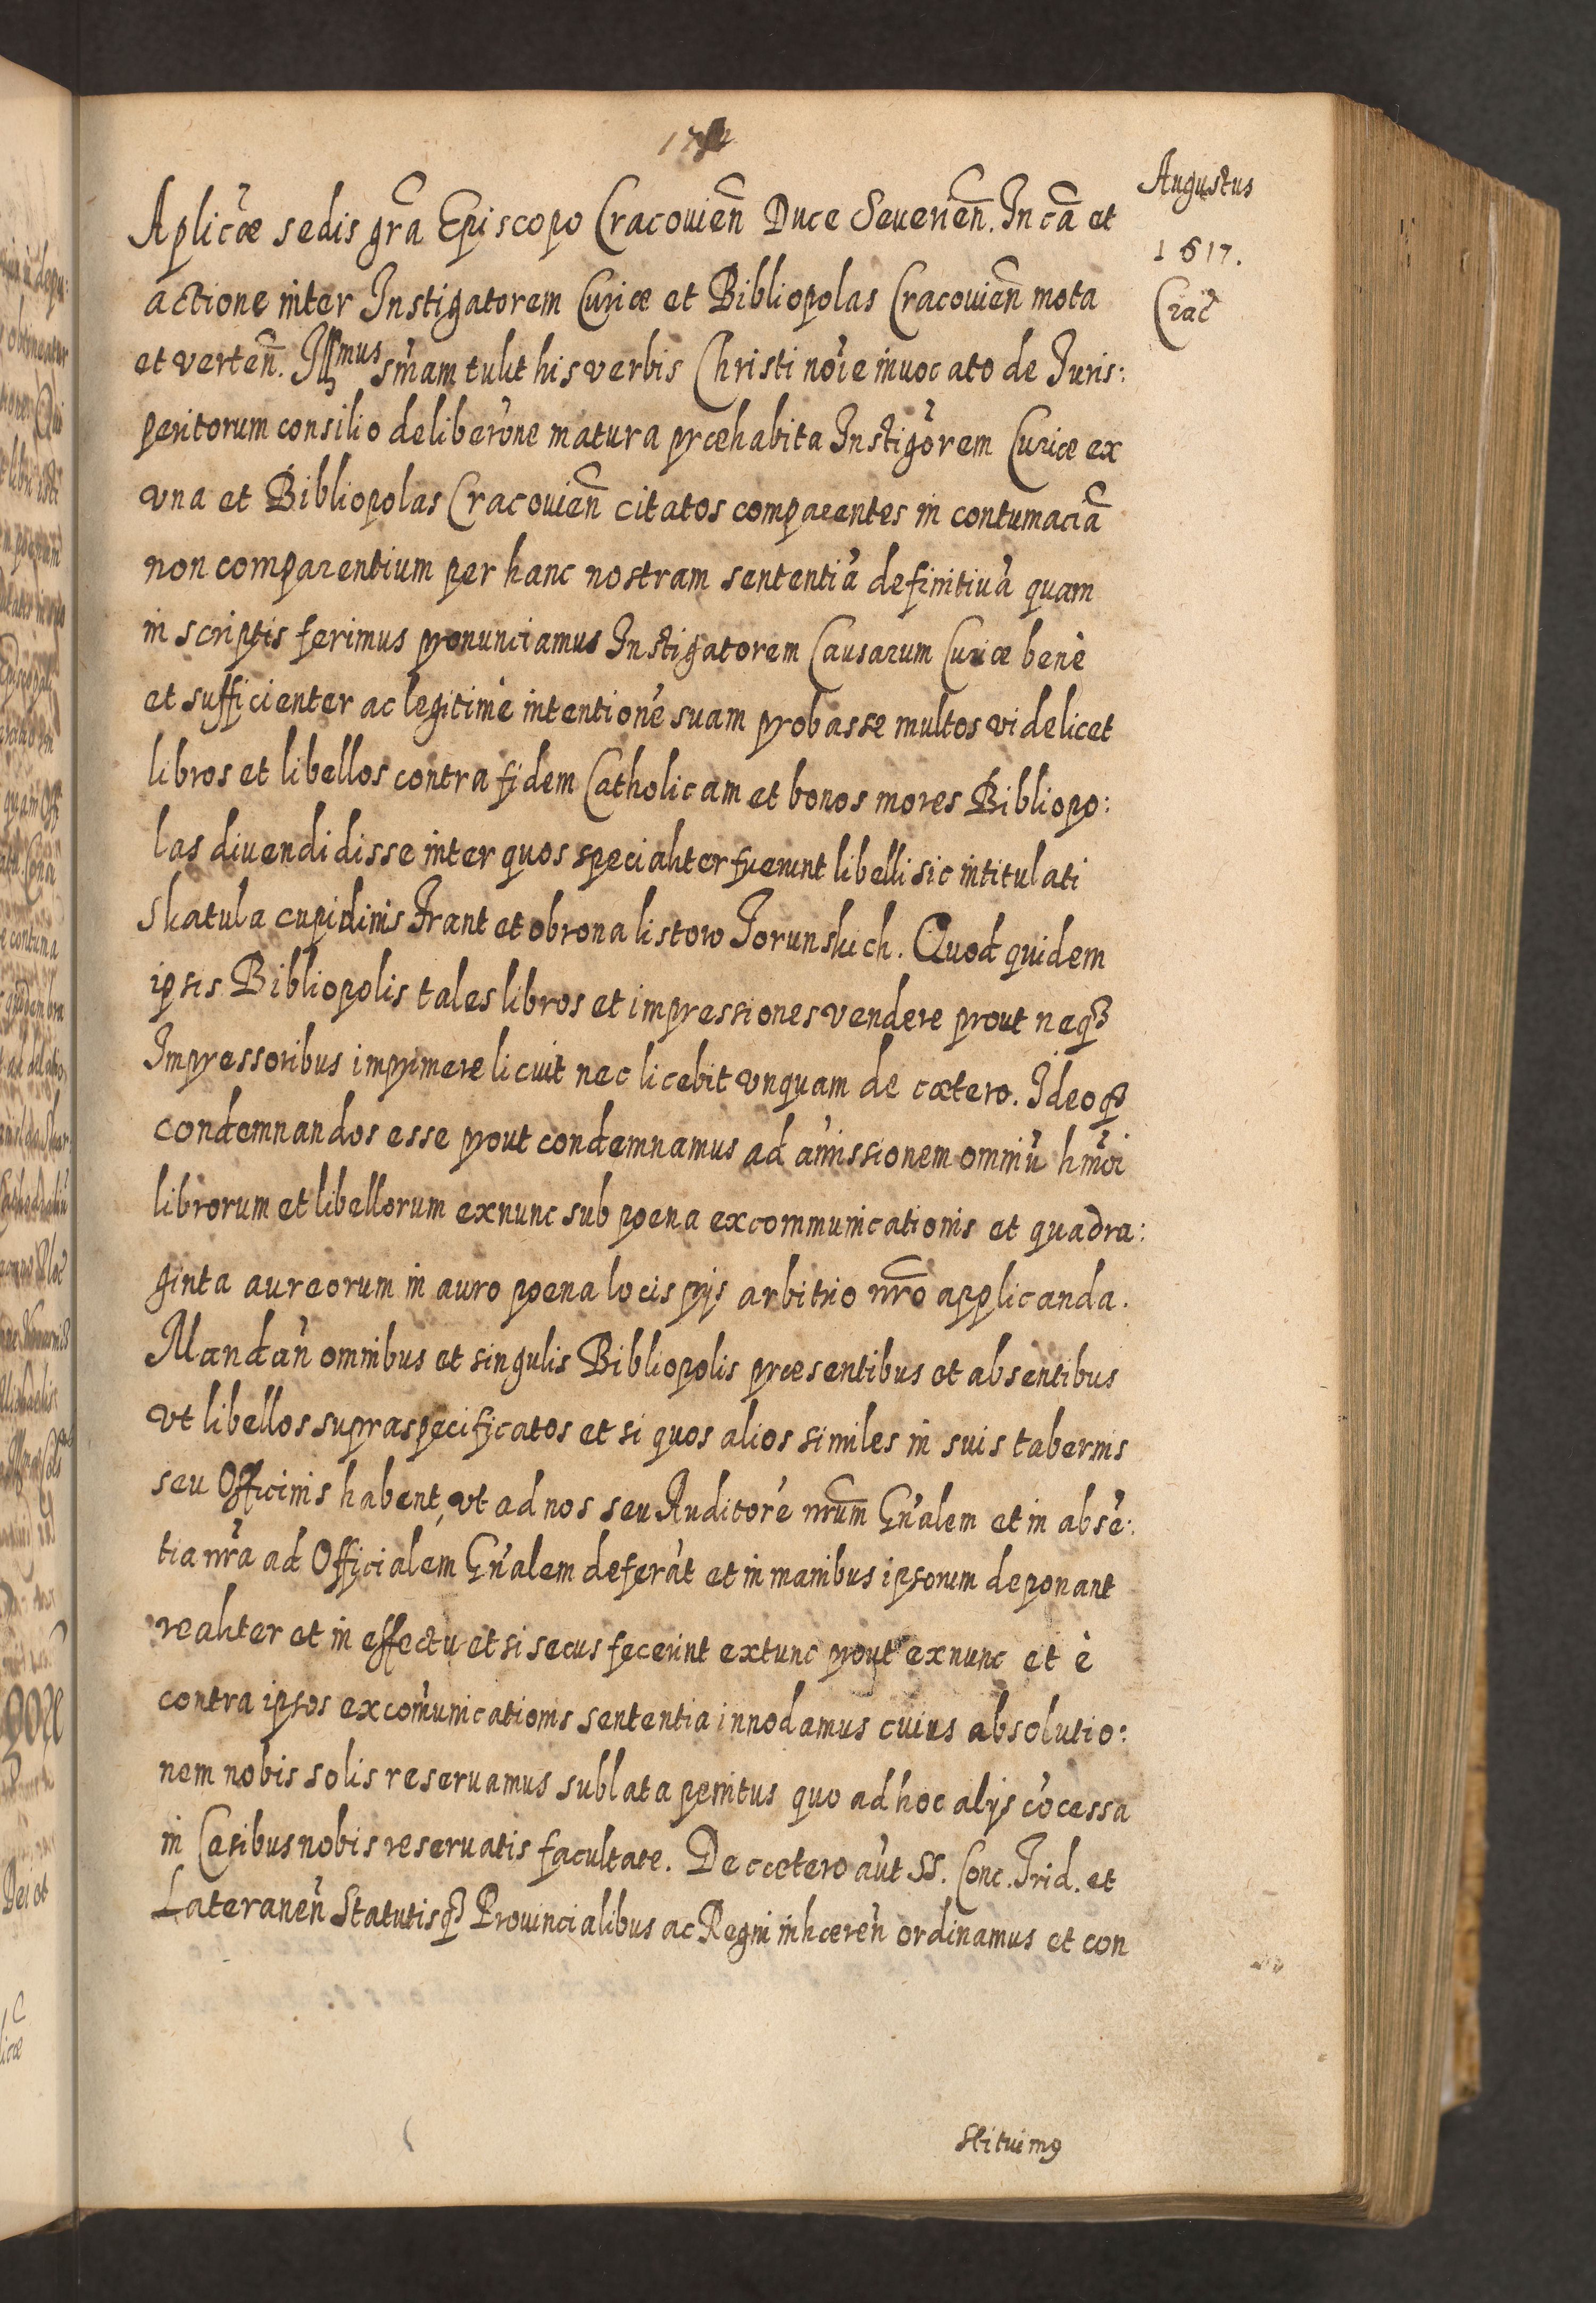 Augustus
1617.
Crac̃
Aplicæ sedis grã Episcopo Cracouieñ Duce Seuerieñ. In cã et
actione inter Instigatorem Curiæ et Bibliopolas Cracouieñ mota
et verteñ. Illmus sm̃am tulit his verbis Christi noi͂e inuocato de Juris:
peritorum consilio deliberõne matura præhabita Instigõrem Curiæ ex
vna et Bibliopolas Cracouieñ citatos comparentes in contumaciã
non comparentium per hanc nostram sententiã definitiuã quam
in scriptis ferimus pronunciamus Instigatorem Causarum Curiæ benè
et sufficienter ac legitimè intentionẽ suam probasse multos videlicet
libros et libellos contra fidem Catholicam et bonos mores Bibliopo:
las diuendidisse inter quos specialiter fuerunt libelli sic intitulati
Skatula cupidinis Trant et obrona listow Torunskich. Quod quidem
ipsis Bibliopolis tales libros et impressiones vendere prout neqꝫ
Impressoribus imprimere licuit nec licebit vnquam de cætero. Ideoqꝫ
condemnandos esse prout condemnamus ad amissionem omniũ hmõi
librorum et libellorum exnunc sub poena excommunicationis et quadra:
ginta aureorum in auro poena locis pijs arbitrio nr̃o applicanda.
Mandañ omnibus et singulis Bibliopolis præsentibus et absentibus
vt libellos supraspecificatos et si quos alios similes in suis tabernis
seu Officinis habent, vt ad nos seu Auditorẽ nr̃um Gñalem et in absẽ:
tia nr̃a ad Officialem Gñalem deferãt et in manibus ipsorum deponant
realiter et in effectu et si secus fecerint extunc prout exnunc et è
contra ipsos excom̃unicationis sententia innodamus cuius absolutio:
nem nobis solis reseruamus sublata penitus quo ad hoc alijs cõcessa
in Casibus nobis reseruatis facultate. De cætero aũt SS. Conc. Trid. et
Lateraneñ Statutisqꝫ Prouincialibus ac Regni inhæreñ ordinamus et con
stituimꝯ